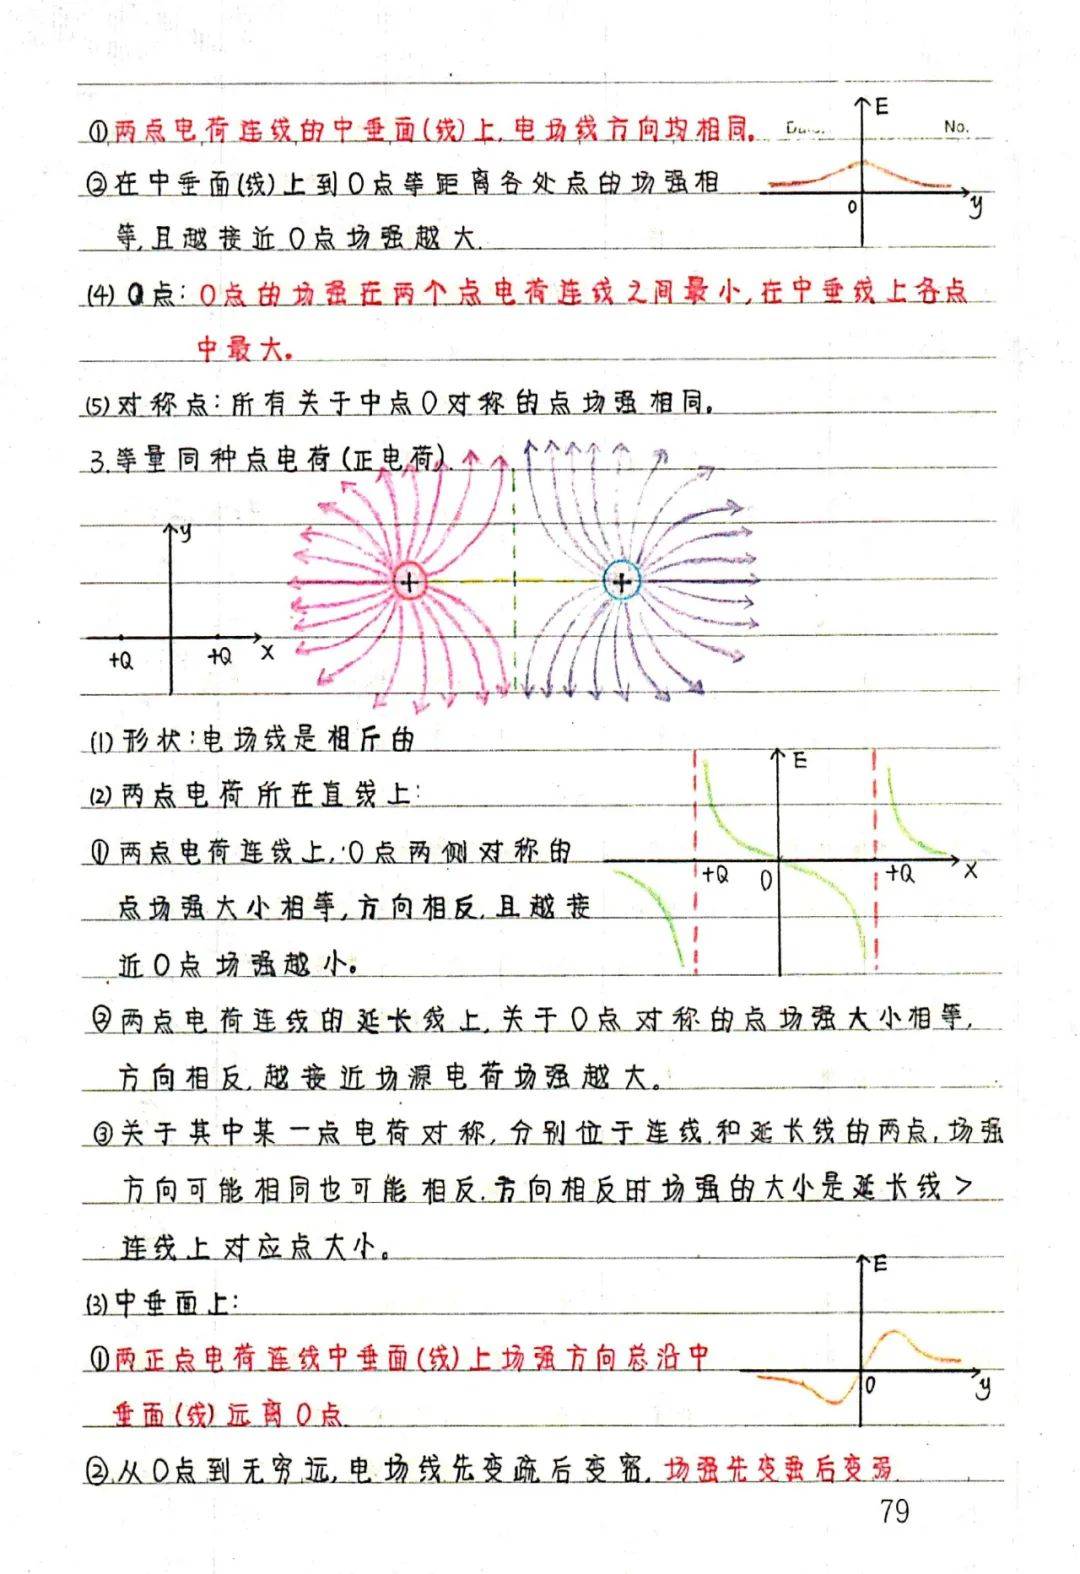 Date. No.
①两点电荷连线的中垂面(线)上,电场线方向均相同。
E
y
0
②在中垂面(线)上到O点等距离各处点的场强相
等,且越接近O点场强越大.
(4) O点:O点的场强在两个点电荷连线之间最小,在中垂线上各点
中最大。
(5)对称点:所有关于中点O对称的点场强相同。
3.等量同种点电荷(正电荷).
y
+Q
+Q
x
+
+
(1)形状:电场线是相斥的
(2)两点电荷所在直线上:
E
+Q
0
+Q
x
①两点电荷连线上,O点两侧对称的
点场强大小相等,方向相反,且越接
近O点场强越小。
②两点电荷连线的延长线上,关于O点对称的点场强大小相等,
方向相反,越接近场源电荷场强越大。
③关于其中某一点电荷对称,分别位于连线和延长线的两点,场强
方向可能相同也可能相反.方向相反时场强的大小是延长线>
连线上对应点大小。
(3)中垂面上:
E
0
y
①两正点电荷连线中垂面(线)上场强方向总沿中
垂面(线)远离O点.
②从O点到无穷远,电场线先变疏后变密.场强先变强后变弱.
79